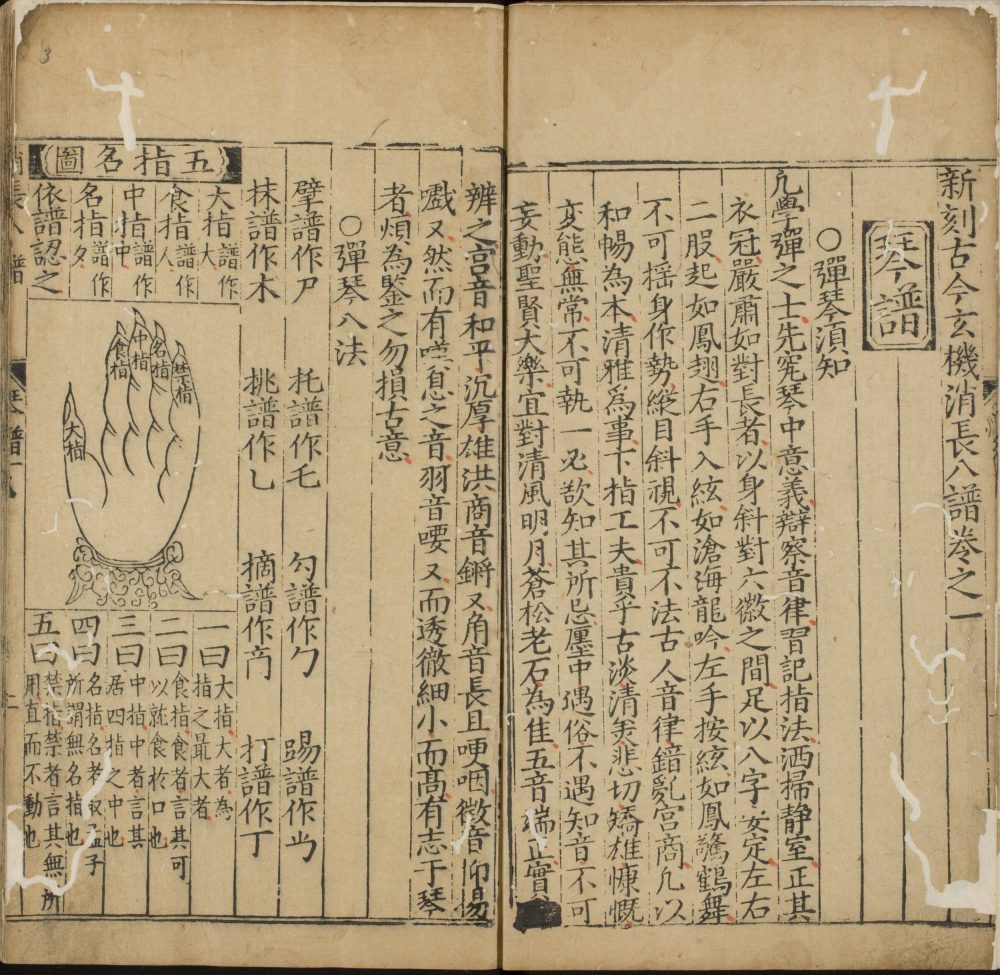 新刻古今玄機消長八譜卷之一
琴譜
○彈琴須知
凢學彈之士先究琴中意義辯察音律習記指法洒掃静室正其
衣冠嚴肅如對長者以身斜對六徽之間足以八字安定左右
二股起如鳳翅右手入絃如滄海龍吟左手按絃如鳳驚鶴舞
不可揺身作勢縱目斜視不可不法古人音律錯亂宮商凢以
和暢為本清雅爲事下指工夫貴乎古淡清羙悲切矯雄慷慨
变態無常不可執一必欲知其所忌塵中遇俗不遇知音不可
妄動聖賢大樂宜對清風明月蒼松老石為佳五音端正實
辨之宫音和平沉厚雄洪商音鏘又角音長且哽咽徵音仰昜
嚱又然而有嘆息之音羽音嚶又而透徹細小而髙有志于琴
者煩為鍳之勿損古意
○彈琴八法
擘譜作尸 托譜作乇 勾譜作勹 踢譜作
抹譜作木 挑譜作乚 摘譜作 打譜作丁
五指名圖
大指譜作大
食指譜作人
中指譜作中
名指譜作夕
依譜認之
大指
食指
中指
名指
禁指
一曰大指大者為指之最大者
二曰食指食者言其可以就食於口也
三曰中指中者言其居四指之中也
四曰名指名者取孟子所謂無名指也
五曰禁指禁者言其無所用直而不動也
消長八譜
琴譜一
3